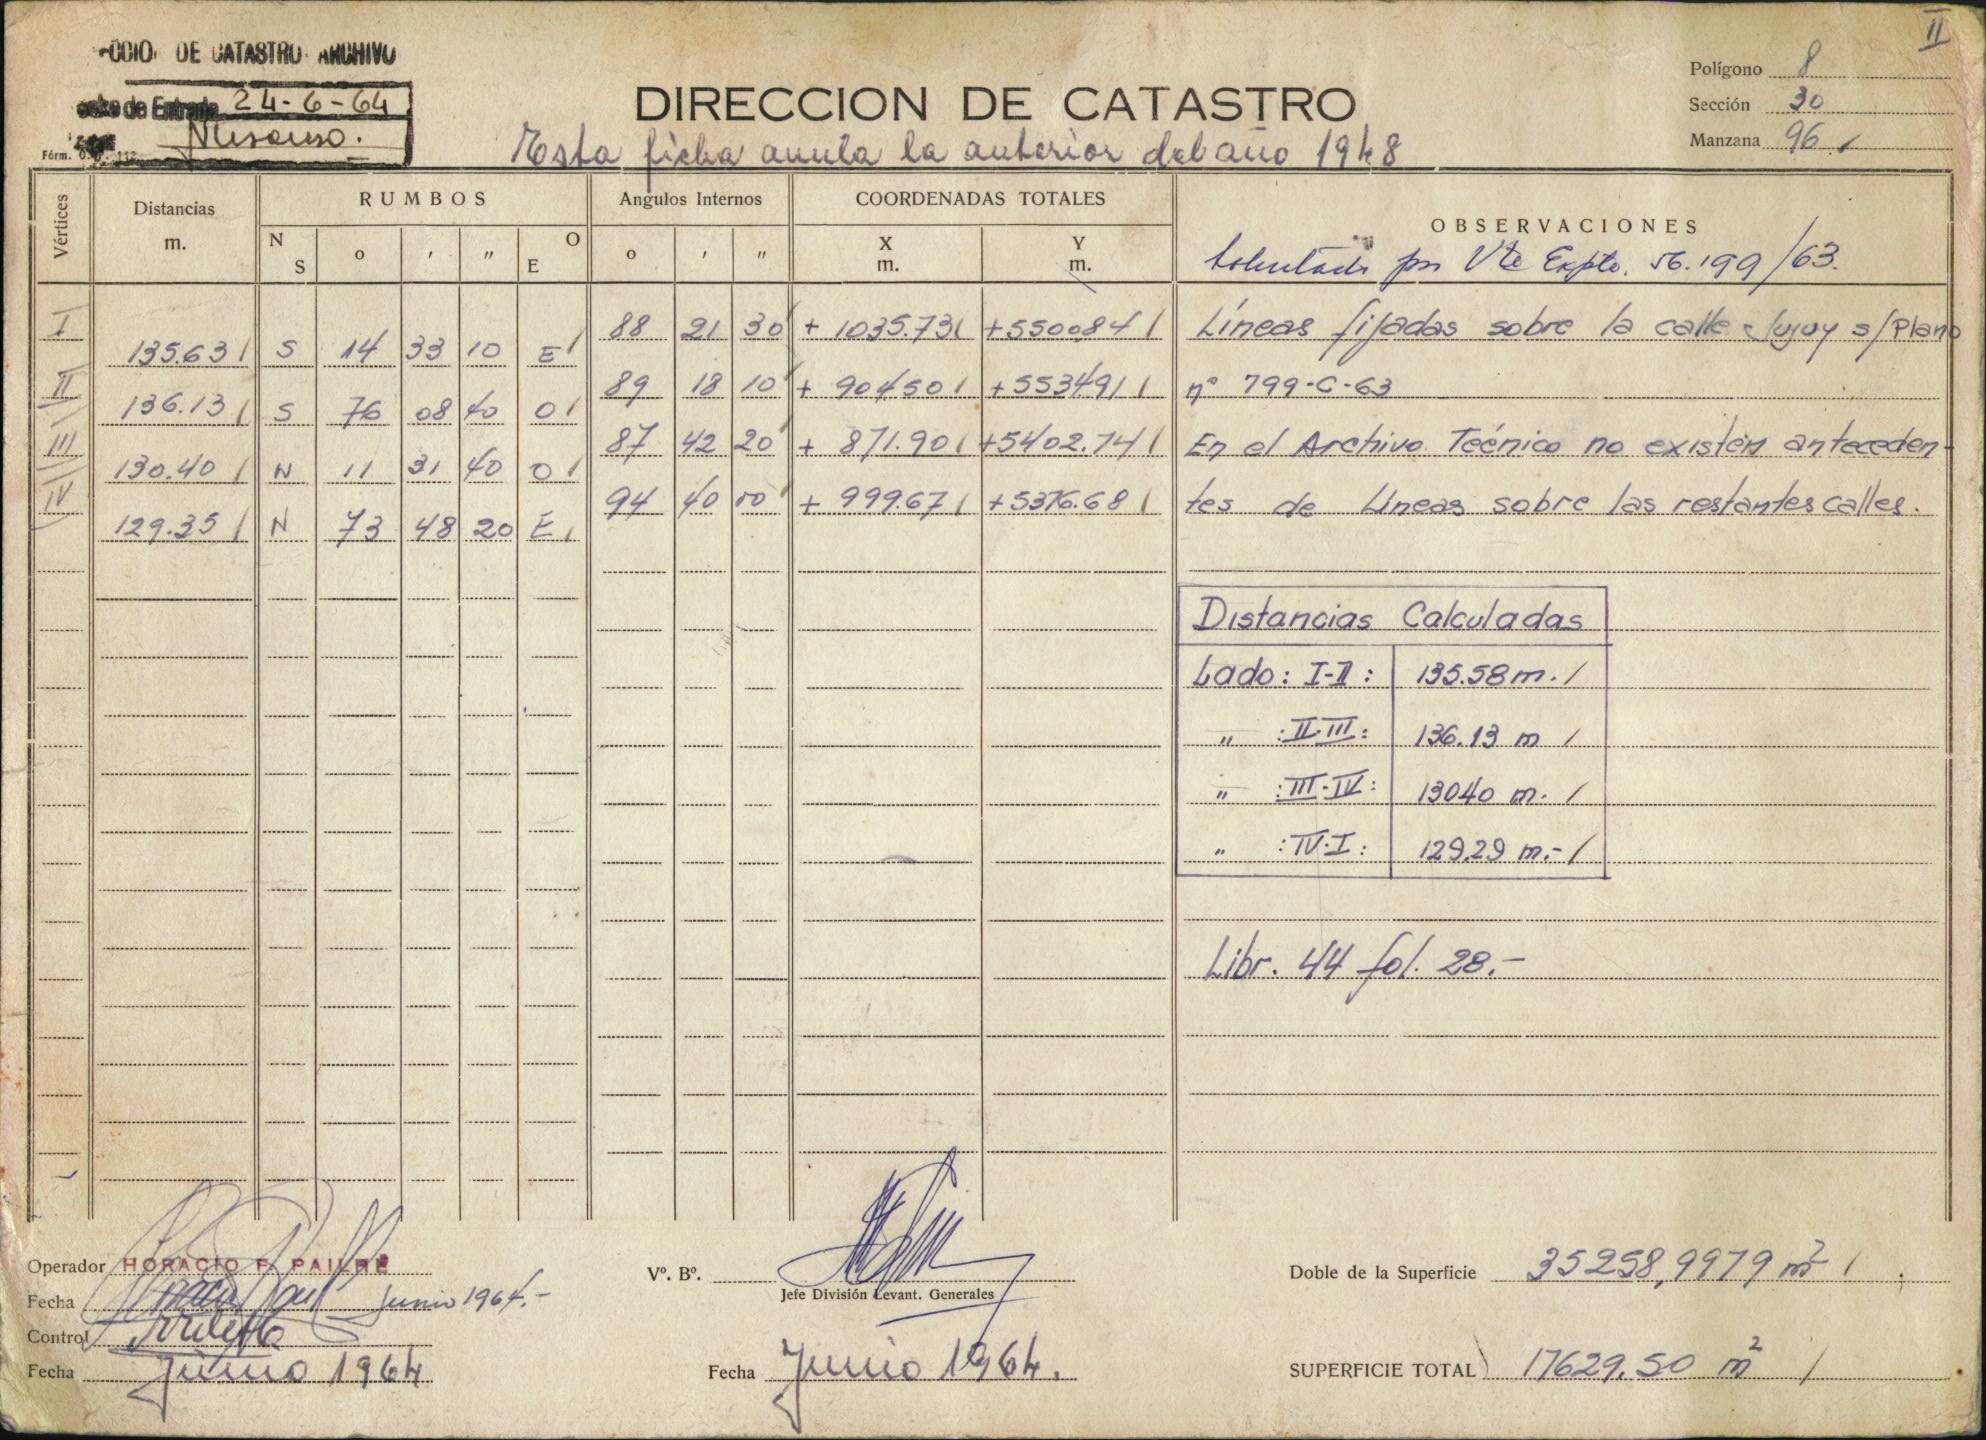 II
DE CATASTRO ARCHIVO
de Entrada 24-6-64
Fórm.
DIRECCION DE CATASTRO
Esta ficha anula la anterior del año 1948
Polígono 8
Sección 30
Manzana 96
Vértices
Distancias m.
RUMBOS
N S ° ' " O E
Angulos Internos
° ' "
COORDENADAS TOTALES
X m. Y m.
OBSERVACIONES
por Vte Expte. 56.199/63.
I 88 21 30 + 1035.73 +5500.84 Líneas fijadas sobre la calle Jujuy s/Plano
135.63 S 14 33 10 E
II 89 18 10 + 904.50 +5534.91 nº 799-C-63
136.13 S 76 08 40 O
III 87 42 20 + 871.90 +5402.74 En el Archivo Técnico no existen anteceden-
130.40 N 11 31 40 O
IV 94 40 00 + 999.67 +5376.68 tes de Líneas sobre las restantes calles.
129.35 N 73 48 20 E
Distancias Calculadas
Lado: I-II: 135.58 m.
" :II-III: 136.13 m
" :III-IV: 130.40 m.
" :IV-I: 129.29 m.-
Libr. 44 fol. 28.-
Operador HORACIO F. PAILHÉ
Fecha junio 1964.-
Control
Fecha Junio 1964
Vº. Bº.
Jefe División Levant. Generales
Fecha Junio 1964.
Doble de la Superficie 35258,9979 m²
SUPERFICIE TOTAL 17629.50 m²